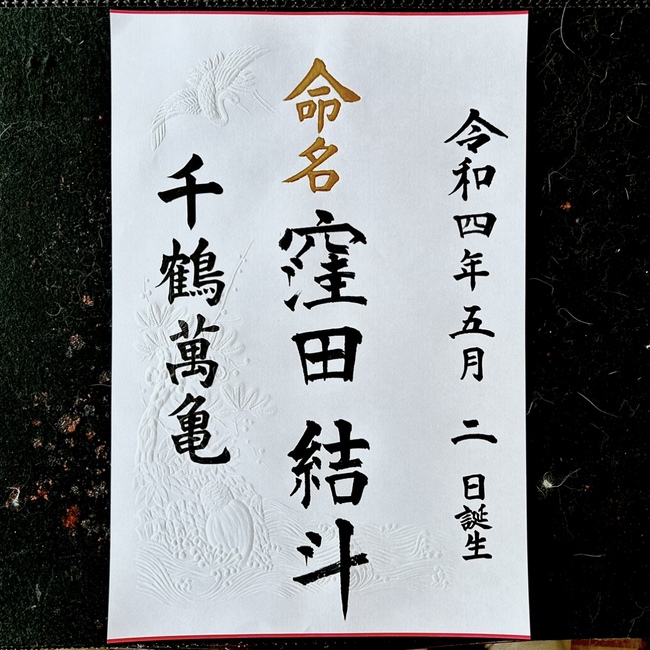 令和四年五月二日誕生
命名 窪田結斗
千鶴萬亀